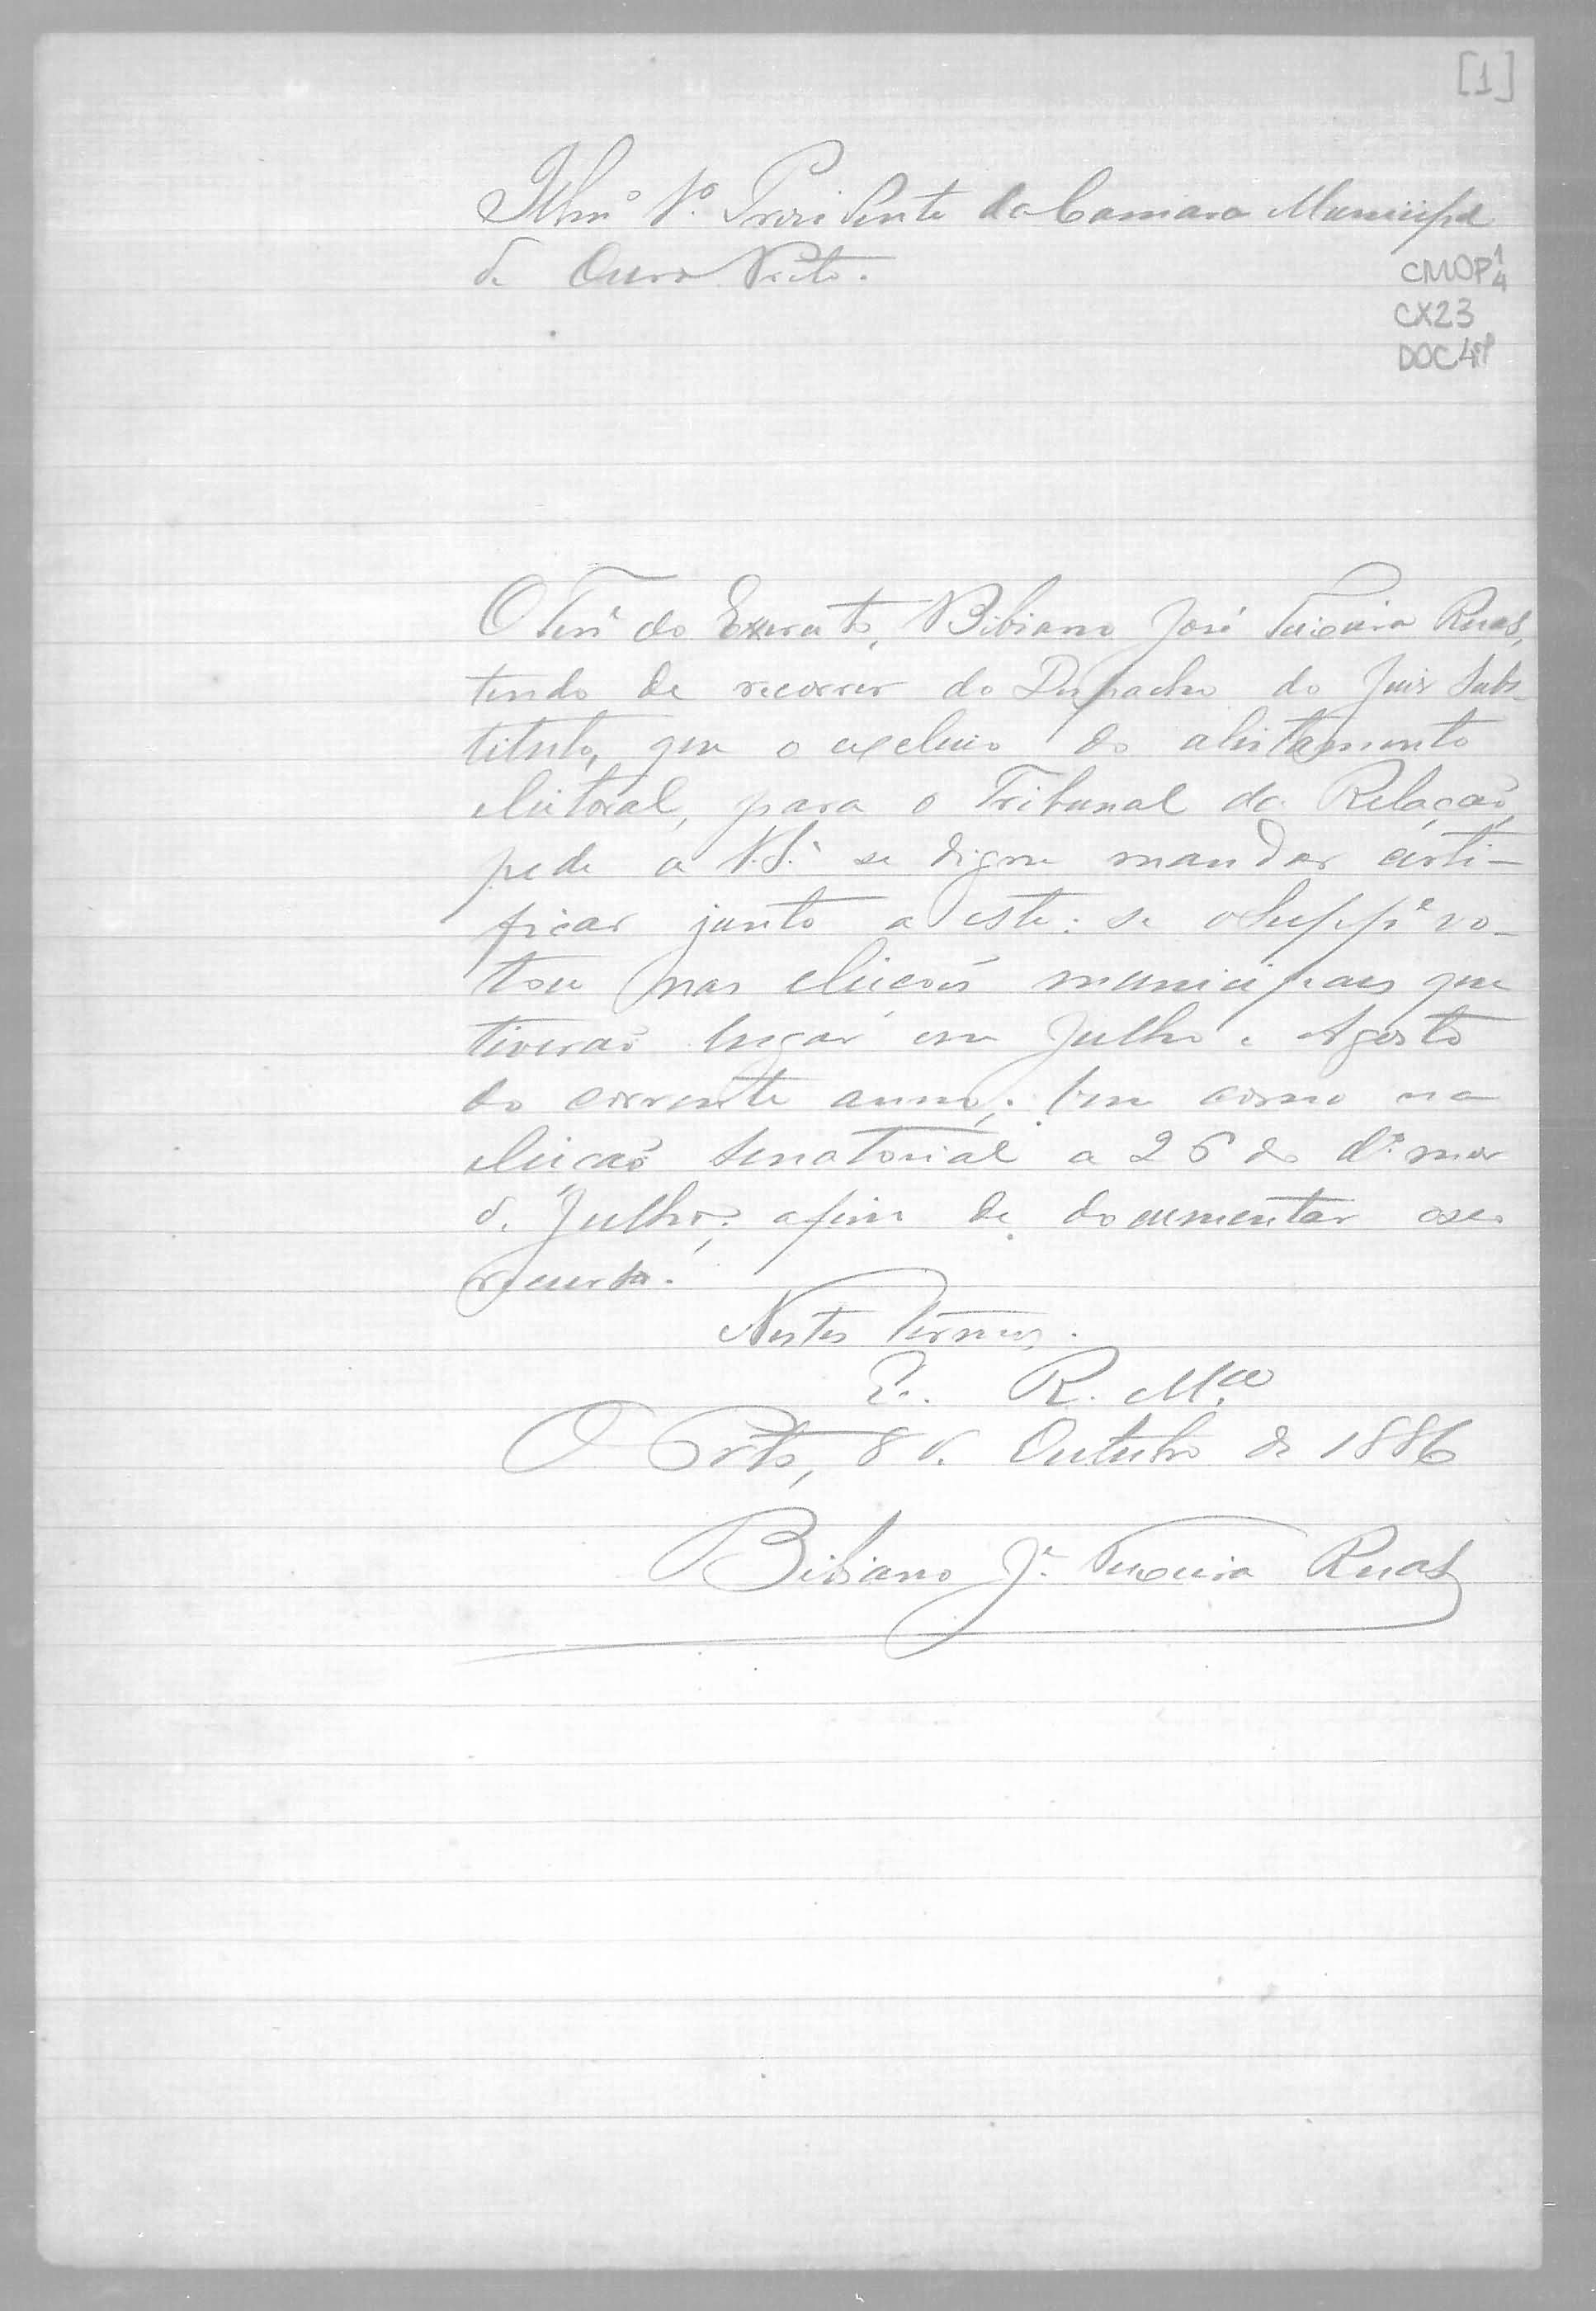 [1]
Illmo Sr. Presidente da Camara Municipal
de Ouro Preto.
CMOP 1/4
CX23
DOC 47
O Tene do Exercito, Bibiano José Teixeira Ruas,
tendo de recorrer do Despacho do Juiz Subs-
tituto, que o excluio do alistamento
eleitoral, para o Tribunal da Relação,
pede a V.S.a se digne mandar certi-
ficar junto a este: se o Suppe vo-
tou nas eleições municipaes que
tiverão lugar em Julho e Agosto
do corrente anno; bem como na
eleição Senatorial a 26 do do mez
de Julho; afim de documentar o seo
recurso.
Nestes Termos,
E. R. Mce
O Preto, 8 de Outubro de 1886
Bibiano Je Teixeira Ruas